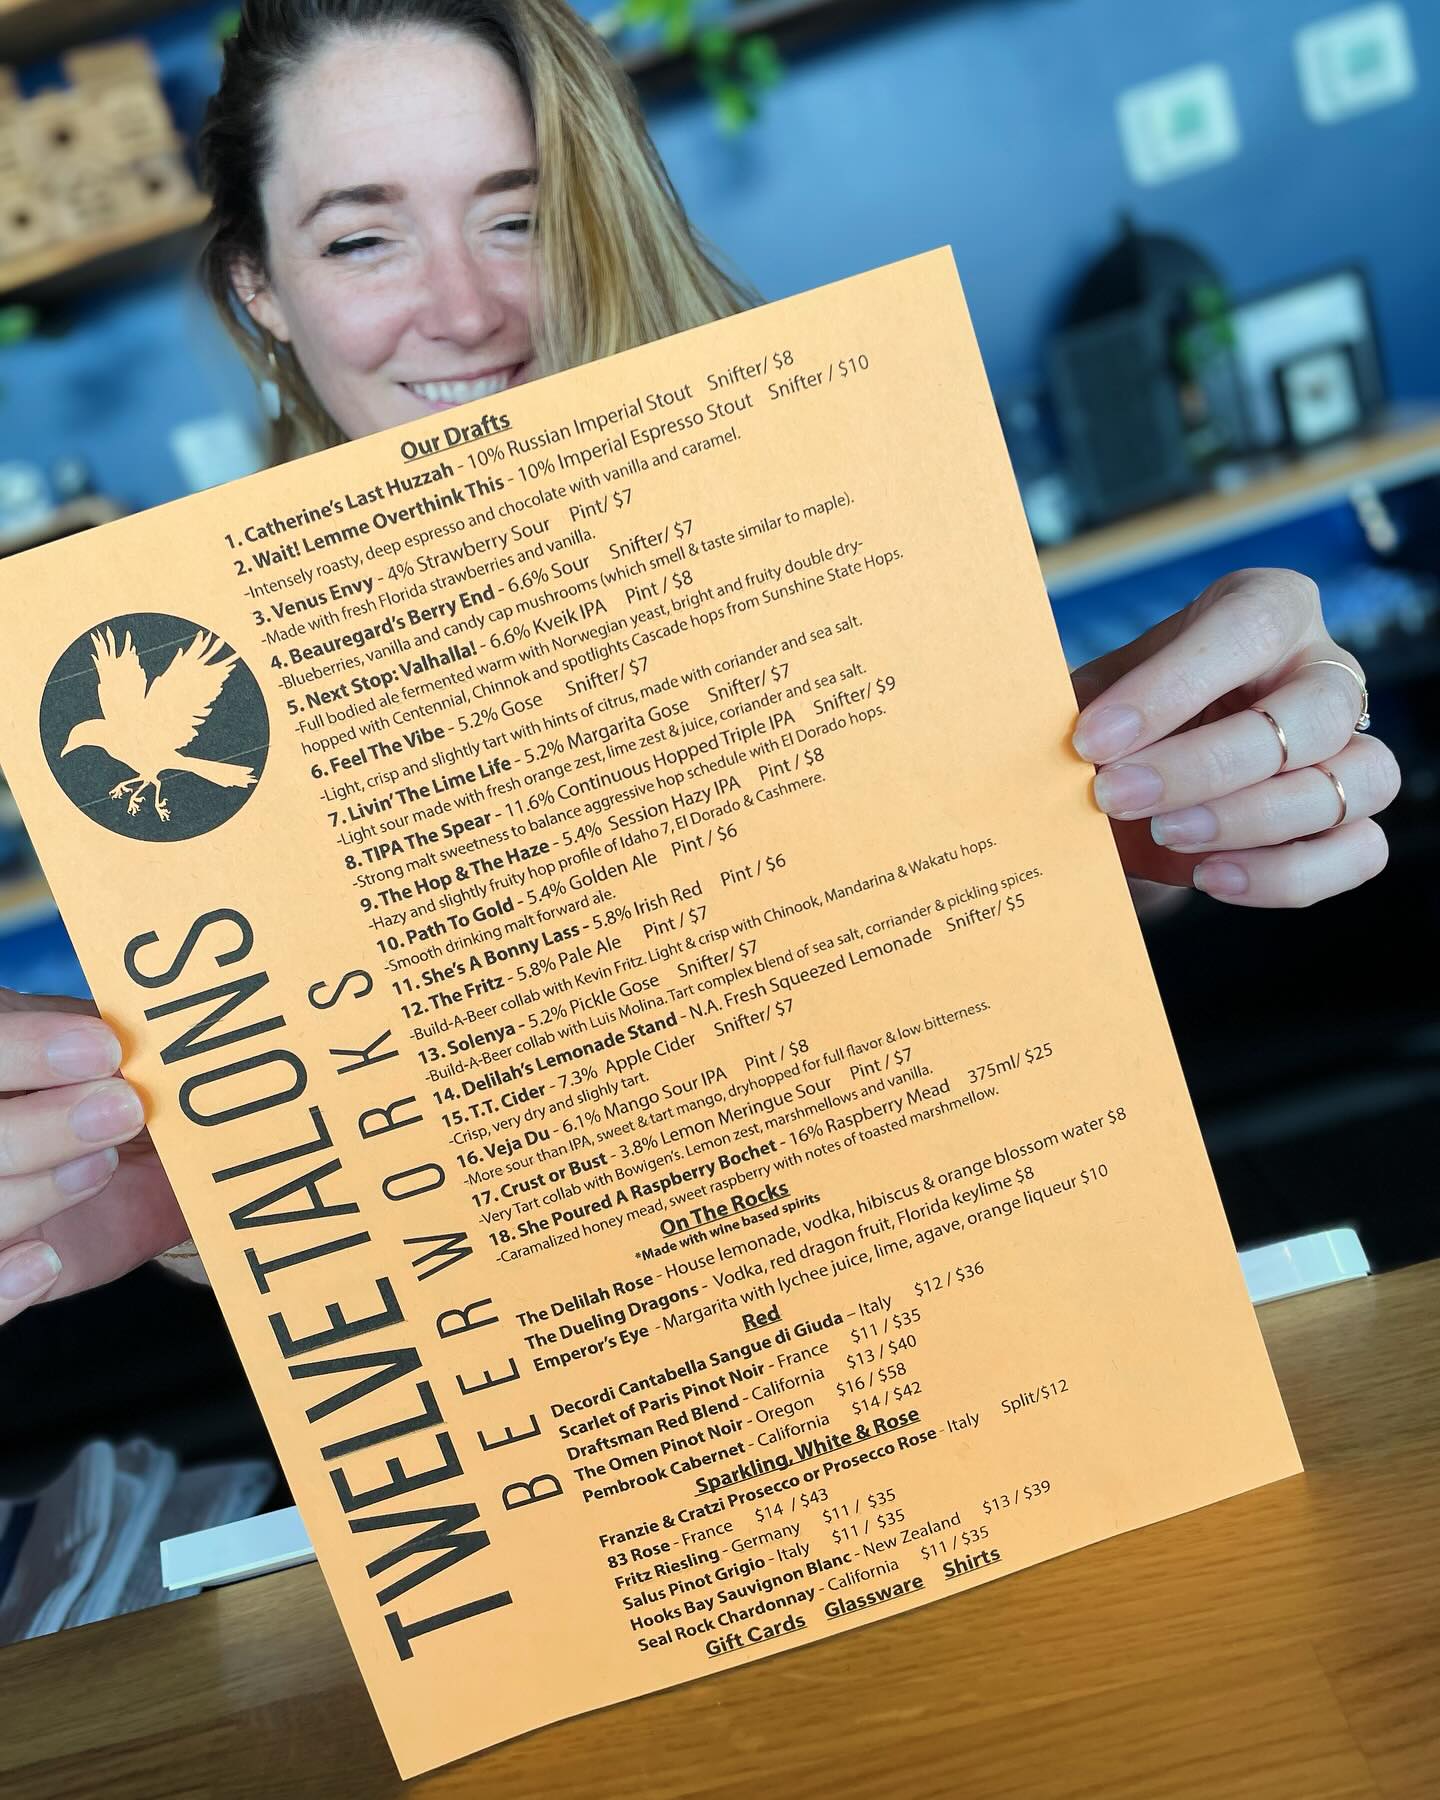 Our Drafts
1. Catherine's Last Huzzah - 10% Russian Imperial Stout Snifter/ $8
2. Wait! Lemme Overthink This - 10% Imperial Espresso Stout Snifter / $10
-Intensely roasty, deep espresso and chocolate with vanilla and caramel.
3. Venus Envy - 4% Strawberry Sour Pint/ $7
-Made with fresh Florida strawberries and vanilla.
4. Beauregard's Berry End - 6.6% Sour Snifter/ $7
-Blueberries, vanilla and candy cap mushrooms (which smell & taste similar to maple).
5. Next Stop: Valhalla! - 6.6% Kveik IPA Pint / $8
-Full bodied ale fermented warm with Norwegian yeast, bright and fruity double dry-
hopped with Centennial, Chinnok and spotlights Cascade hops from Sunshine State Hops.
6. Feel The Vibe - 5.2% Gose Snifter/ $7
-Light, crisp and slightly tart with hints of citrus, made with coriander and sea salt.
7. Livin' The Lime Life - 5.2% Margarita Gose Snifter/ $7
-Light sour made with fresh orange zest, lime zest & juice, coriander and sea salt.
8. TIPA The Spear - 11.6% Continuous Hopped Triple IPA Snifter/ $9
-Strong malt sweetness to balance aggressive hop schedule with El Dorado hops.
9. The Hop & The Haze - 5.4% Session Hazy IPA Pint / $8
-Hazy and slightly fruity hop profile of Idaho 7, El Dorado & Cashmere.
10. Path To Gold - 5.4% Golden Ale Pint / $6
-Smooth drinking malt forward ale.
11. She's A Bonny Lass - 5.8% Irish Red Pint / $6
12. The Fritz - 5.8% Pale Ale Pint / $7
-Build-A-Beer collab with Kevin Fritz. Light & crisp with Chinook, Mandarina & Wakatu hops.
13. Solenya - 5.2% Pickle Gose Snifter/ $7
-Build-A-Beer collab with Luis Molina. Tart complex blend of sea salt, corriander & pickling spices.
14. Delilah's Lemonade Stand - N.A. Fresh Squeezed Lemonade Snifter/ $5
15. T.T. Cider - 7.3% Apple Cider Snifter/ $7
-Crisp, very dry and slighly tart.
16. Veja Du - 6.1% Mango Sour IPA Pint / $8
-More sour than IPA, sweet & tart mango, dryhopped for full flavor & low bitterness.
17. Crust or Bust - 3.8% Lemon Meringue Sour Pint / $7
-Very Tart collab with Bowigen's. Lemon zest, marshmallows and vanilla.
18. She Poured A Raspberry Bochet - 16% Raspberry Mead 375ml/ $25
-Caramalized honey mead, sweet raspberry with notes of toasted marshmellow.
On The Rocks
*Made with wine based spirits
The Delilah Rose - House lemonade, vodka, hibiscus & orange blossom water $8
The Dueling Dragons - Vodka, red dragon fruit, Florida keylime $8
Emperor's Eye - Margarita with lychee juice, lime, agave, orange liqueur $10
Red
Decordi Cantabella Sangue di Giuda – Italy $12 / $36
Scarlet of Paris Pinot Noir - France $11 / $35
Draftsman Red Blend - California $13 / $40
The Omen Pinot Noir - Oregon $16 / $58
Pembrook Cabernet - California $14 / $42
Sparkling, White & Rose
Franzie & Cratzi Prosecco or Prosecco Rose - Italy Split/$12
83 Rose - France $14 / $43
Fritz Riesling - Germany $11 / $35
Salus Pinot Grigio - Italy $11 / $35
Hooks Bay Sauvignon Blanc - New Zealand $13 / $39
Seal Rock Chardonnay - California $11 / $35
Gift Cards Glassware Shirts
TWELVE TALONS
BEERWORKS